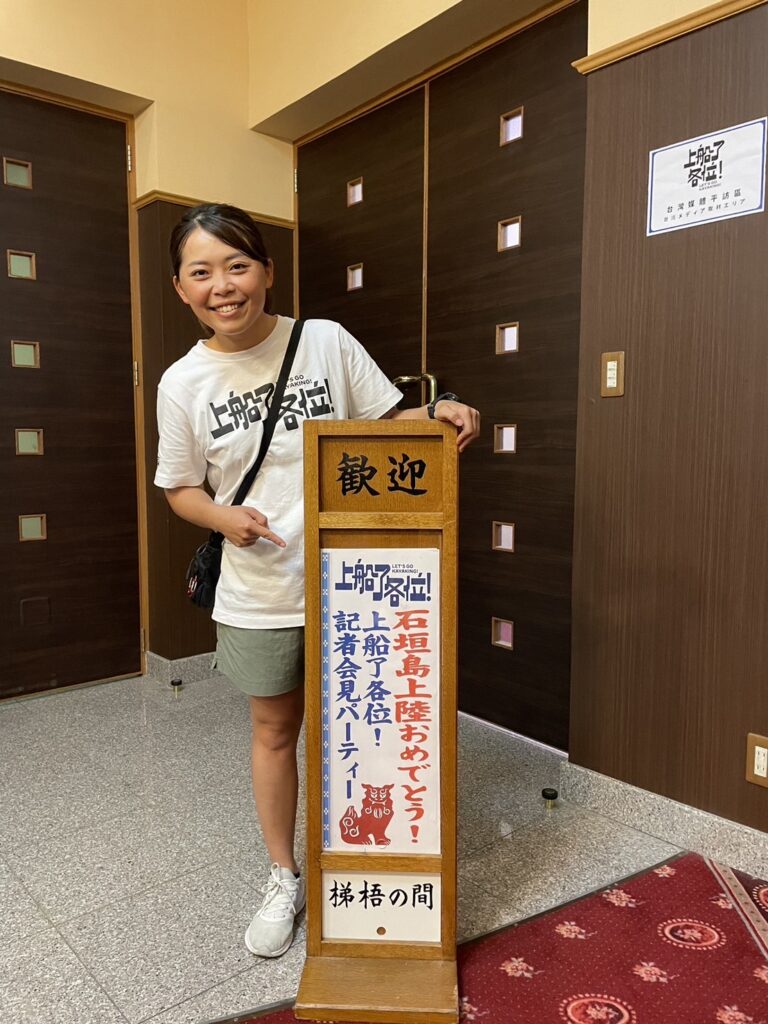 上船了
各位!
LET'S GO
KAYAKING!
台灣媒體平訪區
台湾メディア取材エリア
LET'S GO
KAYAKING!
上船了各位!
歓迎
上船了各位!
LET'S GO
KAYAKING!
石垣島上陸おめでとう!
上船了各位!
記者会見パーティー
梯梧の間